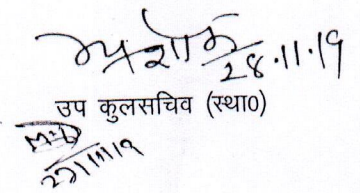 अशोक
28.11.19
उप कुलसचिव (स्था0)
27/11/19